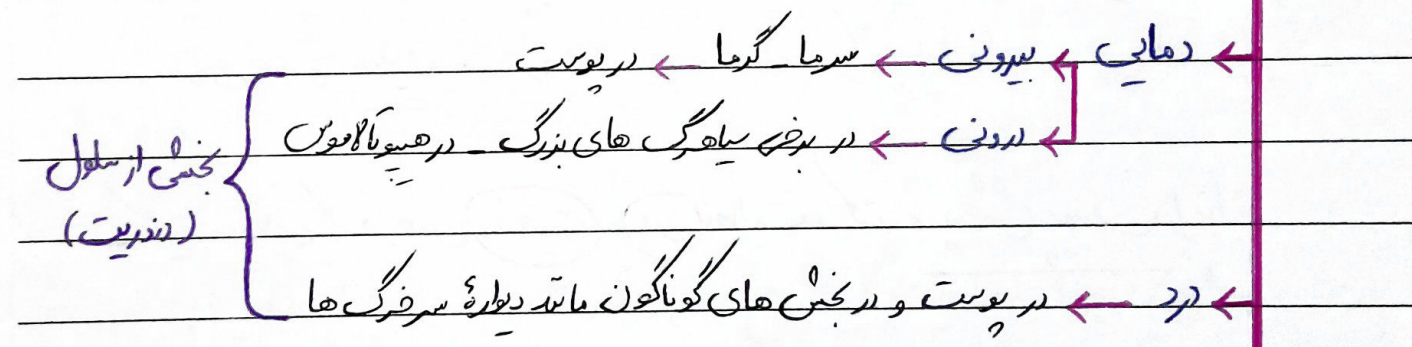 ← دمایی ← بیرونی ← سرما - گرما ← در پوست
← درونی ← در برخی سیاهرگ های بزرگ - در هیپوتالاموس
بخشی از سلول
(دندریت)
← درد ← در پوست و در بخش های گوناگون مانند دیوارهٔ سرخرگ ها